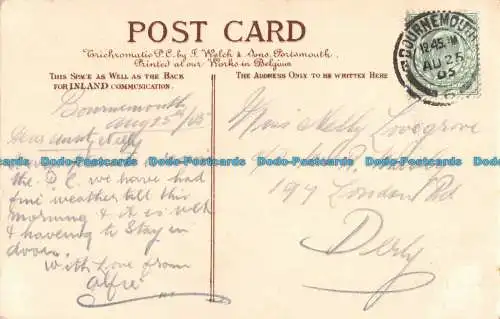 POST CARD
Trichromatic P.C. by F. Welch & Sons, Portsmouth.
Printed at our Works in Belgium
THIS SPACE AS WELL AS THE BACK
FOR INLAND COMMUNICATION.
THE ADDRESS ONLY TO BE WRITTEN HERE
BOURNEMOUTH
12.45 PM
AU 25
05
Bournemouth
Aug 25th/05
Dear Aunt Nelly
the P.C. we have had
fine weather till this
morning & it is wet
& having to stay in
doors.
with love from
Alfie
Miss Nelly Lovegrove
199 London Rd
Derby
Dodo-Postcards Dodo-Postcards Dodo-Postcards Dodo-Postcards Dodo-Postcards